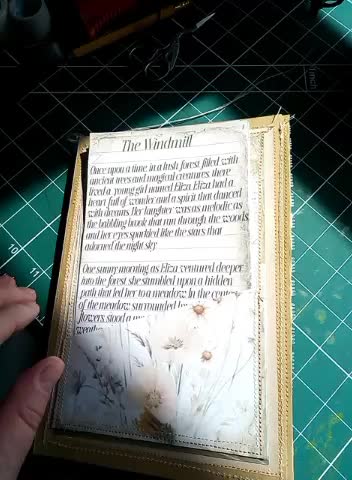 The Windmill
Once upon a time in a lush forest filled with
ancient trees and magical creatures, there
lived a young girl named Eliza. Eliza had a
heart full of wonder and a spirit that danced
with dreams. Her laughter was as melodic as
the babbling brook that ran through the woods,
and her eyes sparkled like the stars that
adorned the night sky.
One sunny morning as Eliza ventured deeper
into the forest she stumbled upon a hidden
path that led her to a meadow. In the
of the meadow surrounded
flowers, stood a
10
11
1 inch